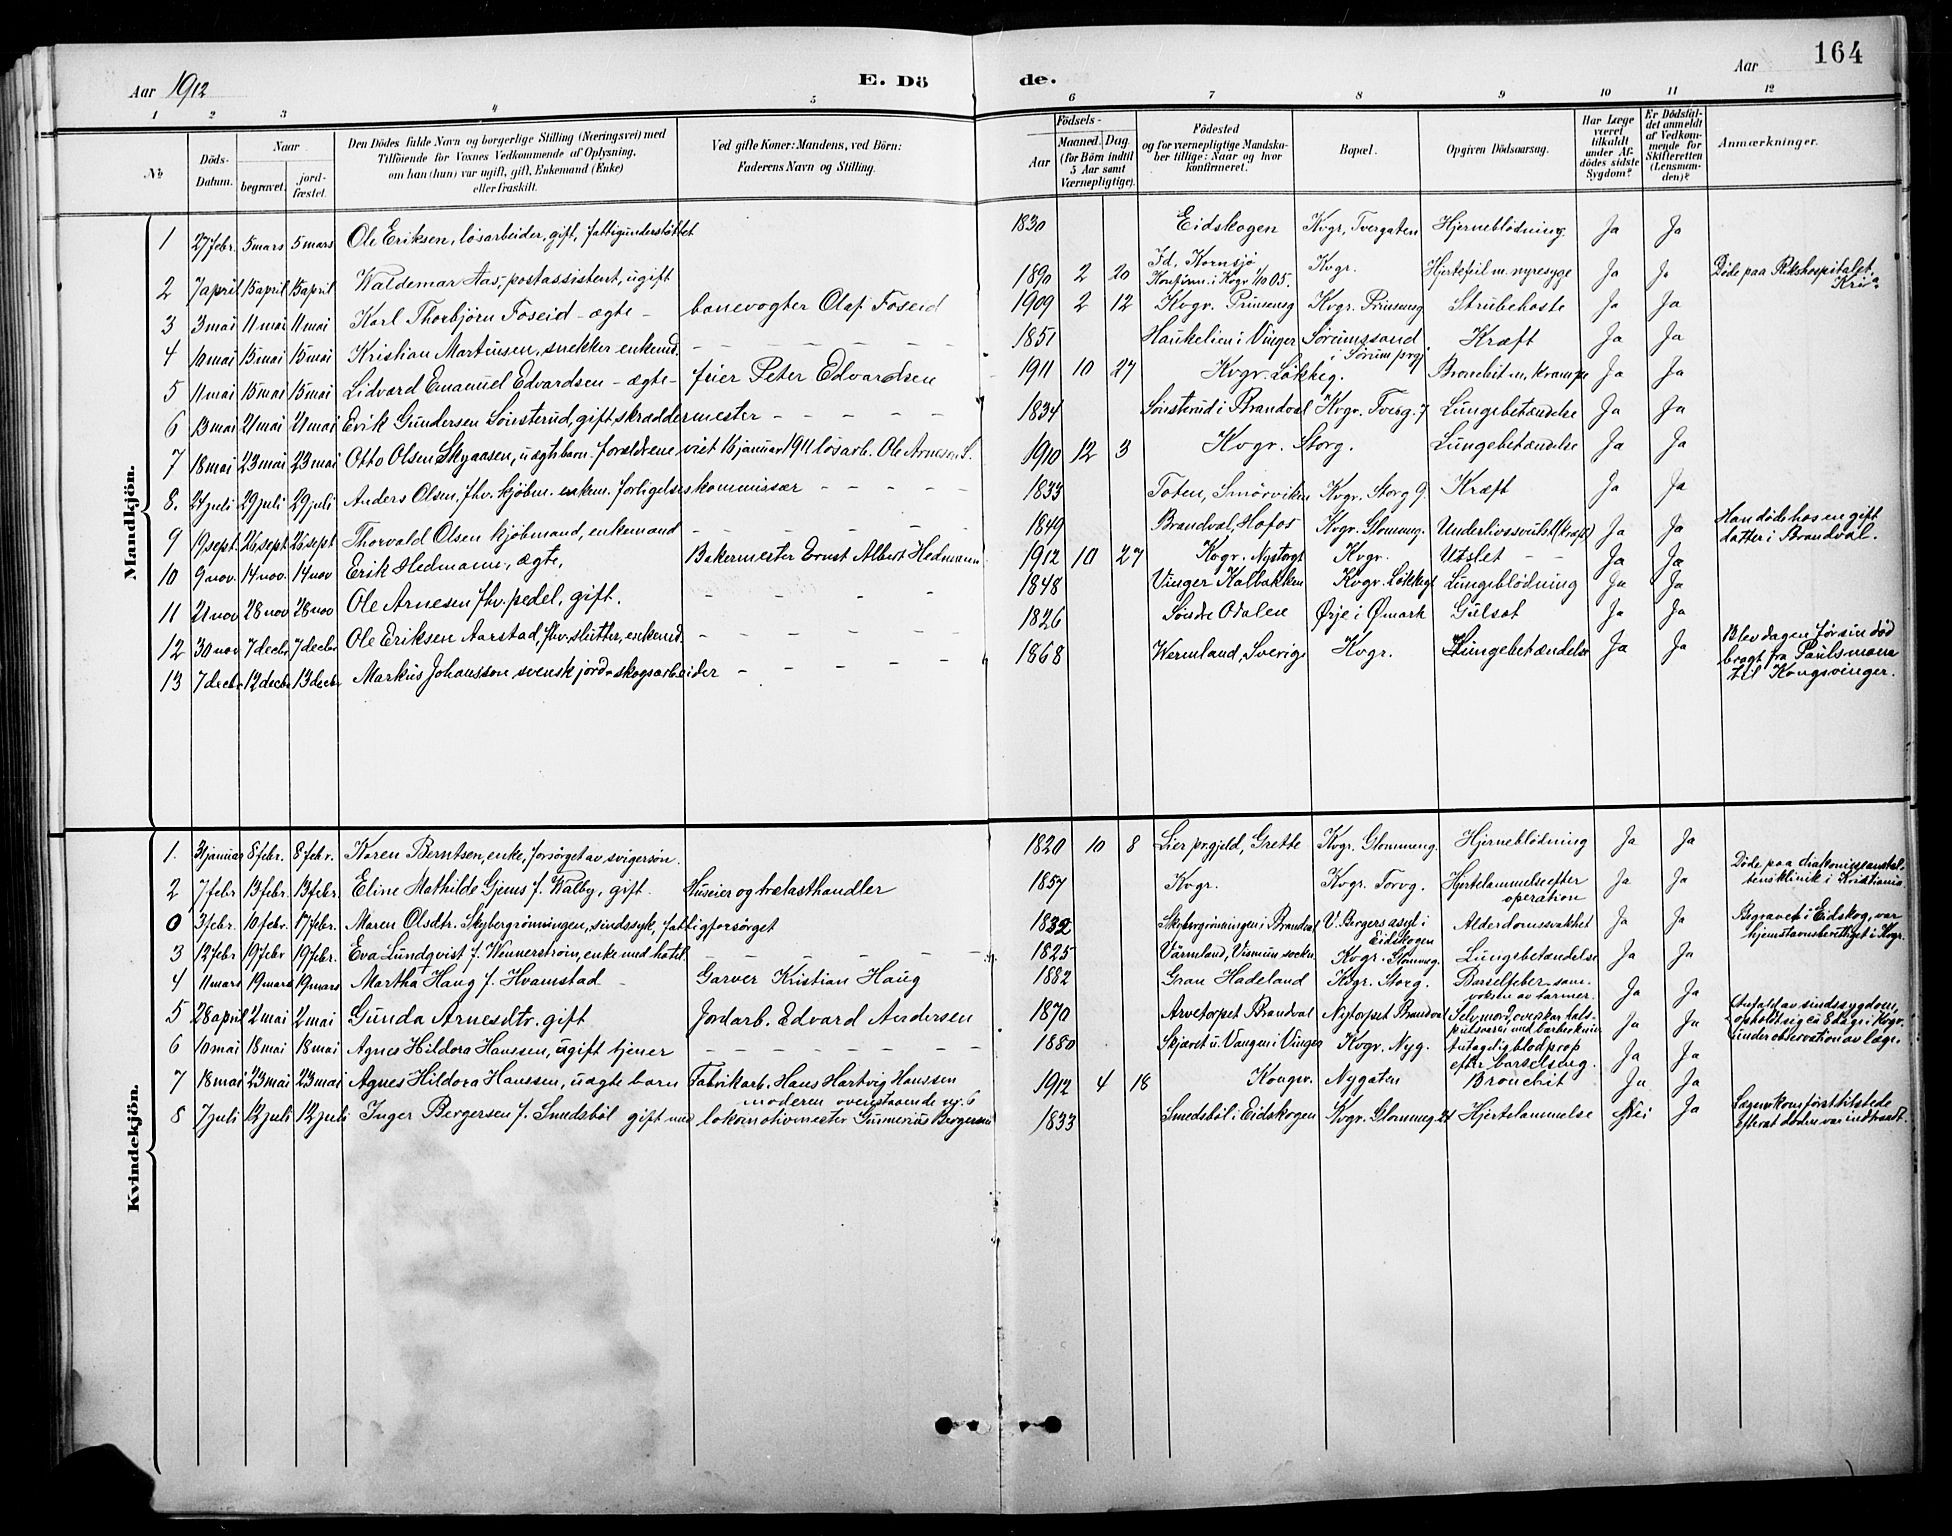 164
Aar 1912 E. Dö de. Aar
1 2 3 4 5 6 7 8 9 10 11 12
№
Döds-Datum.
Naar
begravet.
jordfæstet.
Den Dödes fulde Navn og borgerlige Stilling (Næringsvei) med
Tilföiende for Voxnes Vedkommende af Oplysning,
om han (hun) var ugift, gift, Enkemand (Enke)
eller fraskilt.
Ved gifte Koner: Mandens, ved Börn:
Faderens Navn og Stilling.
Födsels-
Aar
Maaned. Dag.
(for Börn indtil
5 Aar samt
Værnepligtige).
Födested
og for værnepligtige Mandskaber tillige: Naar og hvor
konfirmeret.
Bopæl.
Opgiven Dödsaarsag.
Har Læge
været
tilkaldt
under Afdödes sidste
Sygdom?
Er Dödsfaldet anmeldt
af Vedkommende for
Skifteretten
(Lensmanden)?
Anmærkninger.
Mandkjön.
1 27 febr. 5 mars 5 mars Ole Eriksen, løsarbeider, gift, fattigunderstøttet 1830 Eidskogen Kvgr, Tvergaten Hjerneblödning. Ja Ja
2 7 april 15 april 15 april Waldemar Aas, postassistent, ugift 1890 2 20 Id, Kornsjø Konfirm. i Kvgr 1/10 05. Kvgr. Hjertefeil m. nyresyge Ja Ja Døde paa Rikshospitalet, Kria.
3 3 mai 11 mai 11 mai Karl Thorbjörn Foseid - ægte - banevogter Olaf Foseid 1909 2 12 Kvgr. Prinsensg Kvgr. Prinsensg Strubehoste Ja Ja
4 10 mai 15 mai 15 mai Kristian Martinsen, snekker enkemd. - - - - - - 1851 Haukelien i Vinger Sørumssand i Sørum prg. Kræft Ja Ja
5 11 mai 15 mai 15 mai Lidvard Emanuel Edvardsen - ægte - feier Peter Edvardsen 1911 10 27 Kvgr. Løkkeg. Bronchit m. krampe Ja Ja
6 13 mai 21 mai 21 mai Erik Gundersen Sønsterud, gift, skræddermester - - - - - 1834 Sønsterud i Brandval Kvgr. Tverg. 7 Lungebetændelse Ja Ja
7 18 mai 23 mai 23 mai Otto Olsen Skyaasen, uægte barn. forældrene viet 16 januar 1911 løsarb. Ole Arnesen S. 1910 12 3 Kvgr. Storg. Lungebetændelse Ja Ja
8. 24 juli 29 juli 29 juli Anders Olsen, fhv. kjøbm. enkem. forligelseskommissær - - - - - 1833 Toten, Smörviken Kvgr. Storg 9. Kræft Ja Ja
9 19 sept 26 sept 26 sept Thorvald Olsen kjøbmand, enkemand - - - - - - 1849 Brandval, Hofos Kvgr. Glommeng. Underlivssvulst (kræft) Ja Ja Han døde hos en gift datter i Brandval.
10 9 nov. 14 nov. 14 nov Erik Hedmann, ægte, Bakermester Ernst Albert Hedmann 1912 10 27 Kvgr. Nystorgt Kvgr. Utslet - - Ja Ja
11 21 nov 28 nov 28 nov Ole Arnesen fhv. pedel, gift. - - - - 1848 Vinger Kalbakken Kvgr. Løkkegt Lungeblödning Ja Ja
12 30 nov 7 decbr 7 decbr Ole Eriksen Aarstad, fhv. slutter, enkemd. - - - - - 1826 Søndre Odalen Ørje i Ømark Gulsot Ja Ja
13 7 decbr 12 decbr 13 decbr Markus Johansson svensk jord- skogsarbeider - - - - - 1868 Wermland, Sverige Kvgr. Lungebetændelse Ja Ja Blev dagen før sin død bragt fra til Kongsvinger.
Kvindekjön.
1. 31 januar 8 febr. 8 febr. Karen Berntsen, enke, forsørget av svigersøn. 1820 10 8 Lier prgjeld, Grette Kvgr. Glommeng. Hjerneblödning Ja Ja
2 7 febr 13 febr. 13 febr. Eline Mathilde Gjems f. Walby, gift. Huseier og trælasthandler 1857 Kvgr. Kvgr. Torvg. Hjertelammelse efter operation Ja Ja Døde paa diakonisseanstaltens klinik i Kristiania.
0 3 febr. 10 febr. 17 febr. Maren Olsdtr. Skybergrønningen, sindssyk, fattigforsørget 1832 Skybergrønningen i Brandval V. Bergers asyl i Eidskogen Alderdomssvakhet Ja Ja Begravet i Eidskog, var hjemstavnsberettiget i Kvgr.
3 12 febr 19 febr 19 febr. Eva Lundqvist f. Wennerström, enke med hotel. - - - - - - 1825 Värmland, Vismun socken Kvgr. Glommeng. Lungebetændelse Ja Ja
4 11 mars 19 mars 19 mars Martha Haug f. Hvamstad - Garver Kristian Haug 1882 Gran Hadeland Kvgr. Storg. Barselfeber - sam- vokste av tarmer. Ja Ja
5 28 april 2 mai 2 mai Gunda Arnesdtr. gift Jordarb. Edvard Andersen 1870 Arnetorpet Brandval Nytorpet Brandval Selvmord, overskar hals- pulsaaren med barberkniv Ja Ja Anfald av sindssygdom, opholdt sig ca 8 dage i Kvgr. under observation av læge.
6 10 mai 18 mai 18 mai Agnes Hildora Hanssen, ugift tjener - - - - - - 1880 Skjæret u. Vangen i Vinger Kvgr. Nyg. blodprop efter barselseng. Ja Ja
7 18 mai 23 mai 23 mai Agnes Hildora Hanssen, uægte barn Fabrikarb. Hans Hartvig Hanssen moderen ovenstaaende nr. 6 1912 4 18 Kongsv. Nygaten Bronchit Ja Ja
8 7 juli 12 juli 12 juli Inger Bergersen f. Smedsböl gift med lokomotivmester Gunnerius Bergersen 1833 Smedsböl i Eidskogen Kvgr. Glommeng. 21 Hjertelammelse Nei Ja Lægen kom først tilstede efterat døden var indtraadt.